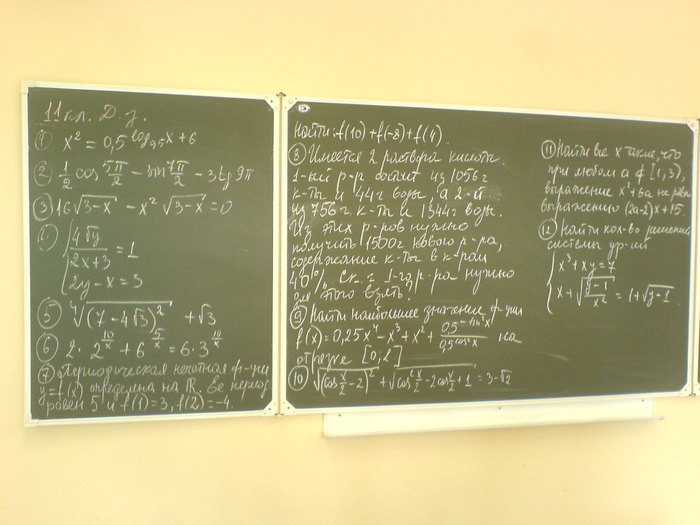 11 кл. Д.з.
① x² = 0,5^(log₀,₅x) + 6
② 1/2 cos 5π/2 − sin 7π/2 − 3 tg 9π
③ 16√(3−x) − x²√(3−x) = 0
4√y / (2x+3) = 1
2y − x = 3
⑤ ⁴√((7−4√3)²) + √3
⑥ 2·2^(10/x) + 6^(5/x) = 6·3^(10/x)
⑦ Периодическая нечетная ф-ция
y=f(x) определена на ℝ. Ее период
равен 5 и f(1)=3, f(2)=−4.
Найти: f(10)+f(−8)+f(4).
⑧ Имеется 2 раствора кислоты.
1-ый р-р состоит из 1056г
к-ты и 44г воды, а 2-й
из 756г к-ты и 1344г воды.
Из этих р-ров нужно
получить 1500г нового р-ра,
содержание к-ты в к-ром
40%. Ск. г 1-го р-ра нужно
для этого взять?
⑨ Найти наибольшее значение ф-ции
f(x) = 0,25x⁴ − x³ + x² + 0,5^(−sin²x) / 0,5^(cos²x) на
отрезке [0;2]
⑩ √((cos x/2 − 2)²) + √(cos² x/2 − 2cos x/2 + 1) = 3−√2
⑪ Найти все x такие, что
при любом a ∉ [1,3),
выражение x²+6a не равно
выражению (2a−2)x+15.
⑫ Найти кол-во решений
системы ур-ий
x³ + xy = 7
x + √((y−1)/x²) = 1+√(y−1)